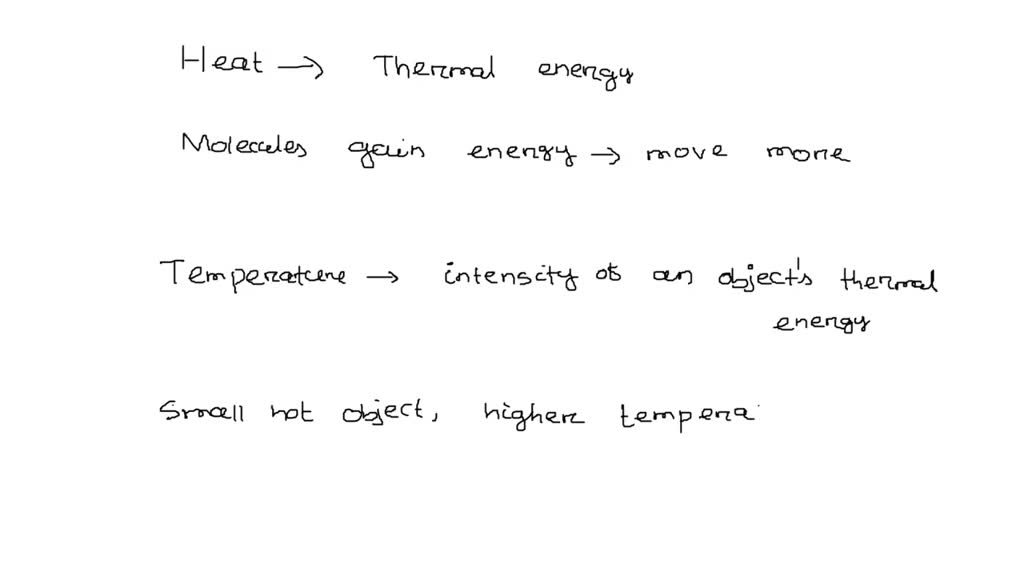 Heat → Thermal energy
Molecules gain energy → move more
Temperature → intensity of an object's thermal
energy
Small hot object, higher tempera